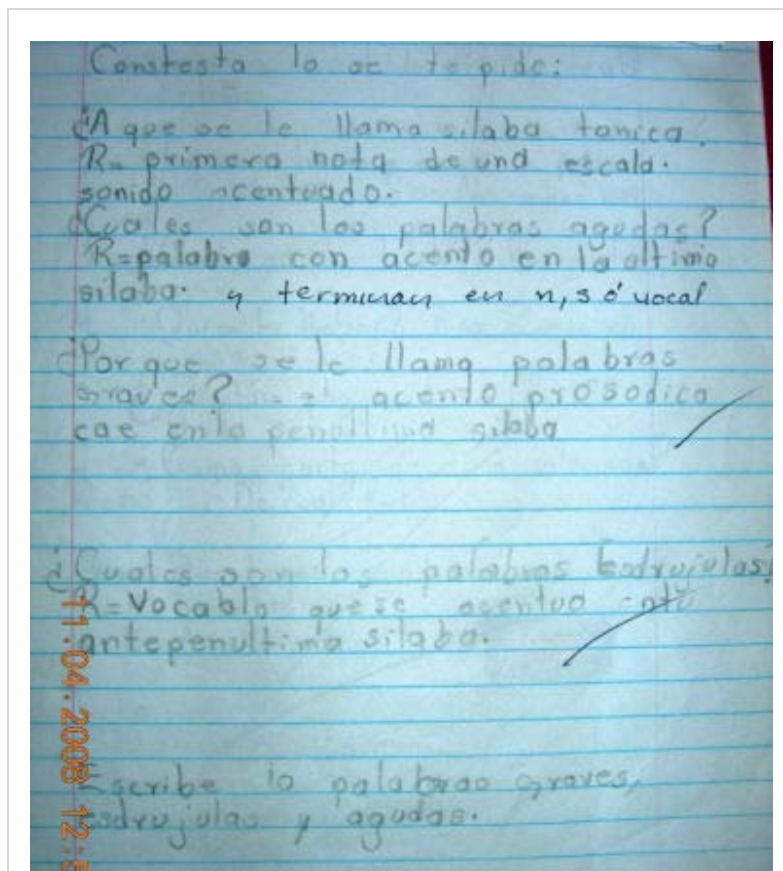 Constesta lo se te pide:
¿A que se le llama silaba tonica.
R= primera nota de una escala.
sonido acentuado.
¿Cuales son las palabras agudas?
R=palabra con acento en la ultima
silaba. y terminan en n, s ó vocal
¿Por que se le llama palabras
graves? acento prosodico
cae en la penultima silaba
¿Cuales son las palabras Esdrujulas?
R=Vocablo que se acentua
antepenultima silaba.
Escribe 10 palabras graves,
esdrujulas y agudas.
11.04.2008 12:5